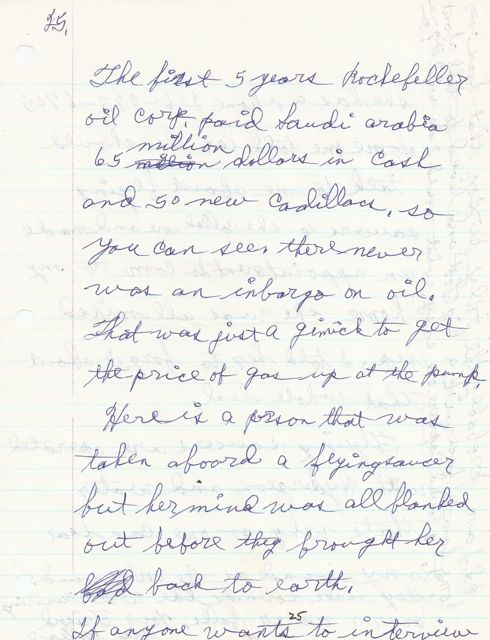 25.
The first 5 years Rockefeller
oil corp. paid Saudi arabia
million
65 million dollars in cash
and 50 new Cadillacs, so
you can seen there never
was an inbargo on oil.
That was just a gimick to get
the price of gas up at the pump.
Here is a prson that was
taken aboard a flyingsaucer
but her mind was all blanked
out before they brought her
back to earth.
25
If anyone wants to interview